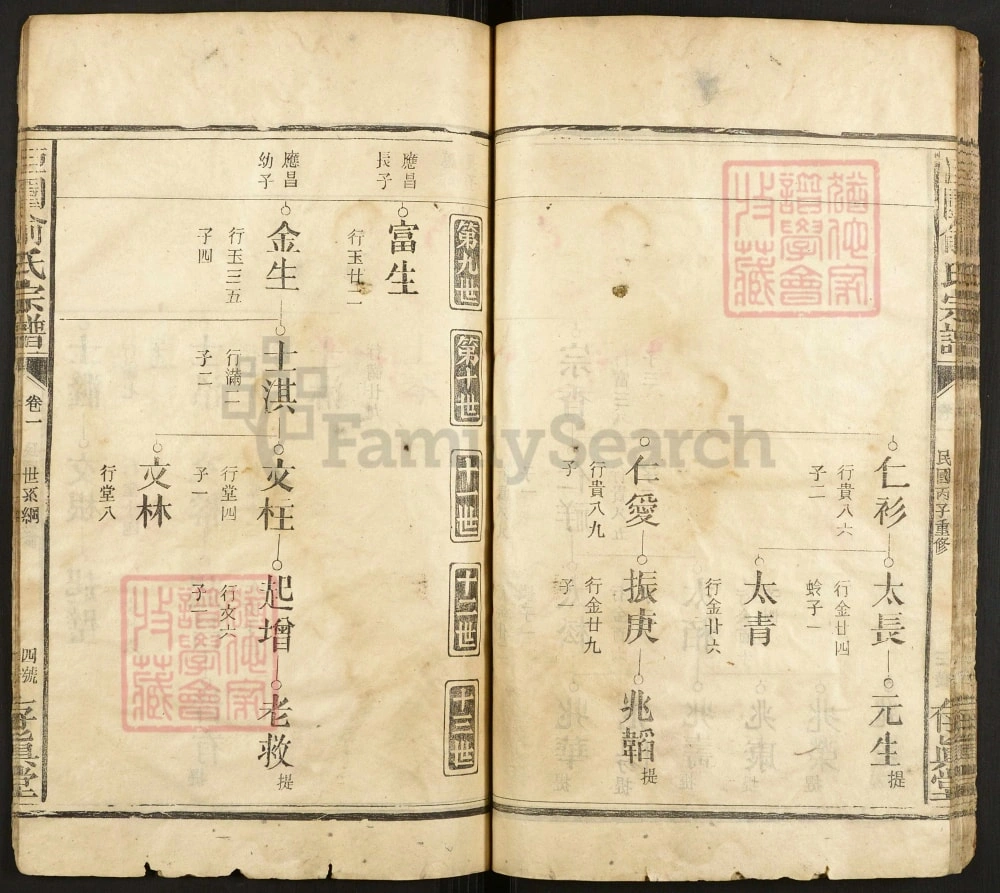 民國丙子重修
仁衫
行貴八六
子二
太長
行金廿四
蛉子一
元生
提
太青
行金廿六
仁愛
行貴八九
子一
振庚
行金廿九
子一
兆韜
提
第九世
第十世
十一世
十二世
十三世
應昌
長子
富生
行玉廿二
應昌
幼子
金生
行玉三五
子四
士淇
行滿二
子二
文枉
行堂四
子一
起增
行文六
子二
老救
提
文林
行堂八
俞氏宗譜
卷一
世系綱
四號
譜學會
收藏
FamilySearch